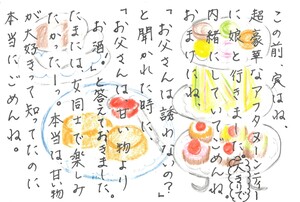 この前、実はね、
超豪華なアフタヌーンティー
に娘と行きました。
内緒にして
おまけにね、
「お父さんは誘わないの?」
と聞かれた時に、
「お父さんは甘い物より
お酒。」と答えておきました。
たまには女同士で楽しみ
たかったー!本当は、甘い物
が大好きって知ってたのに。
本当にごめんね。